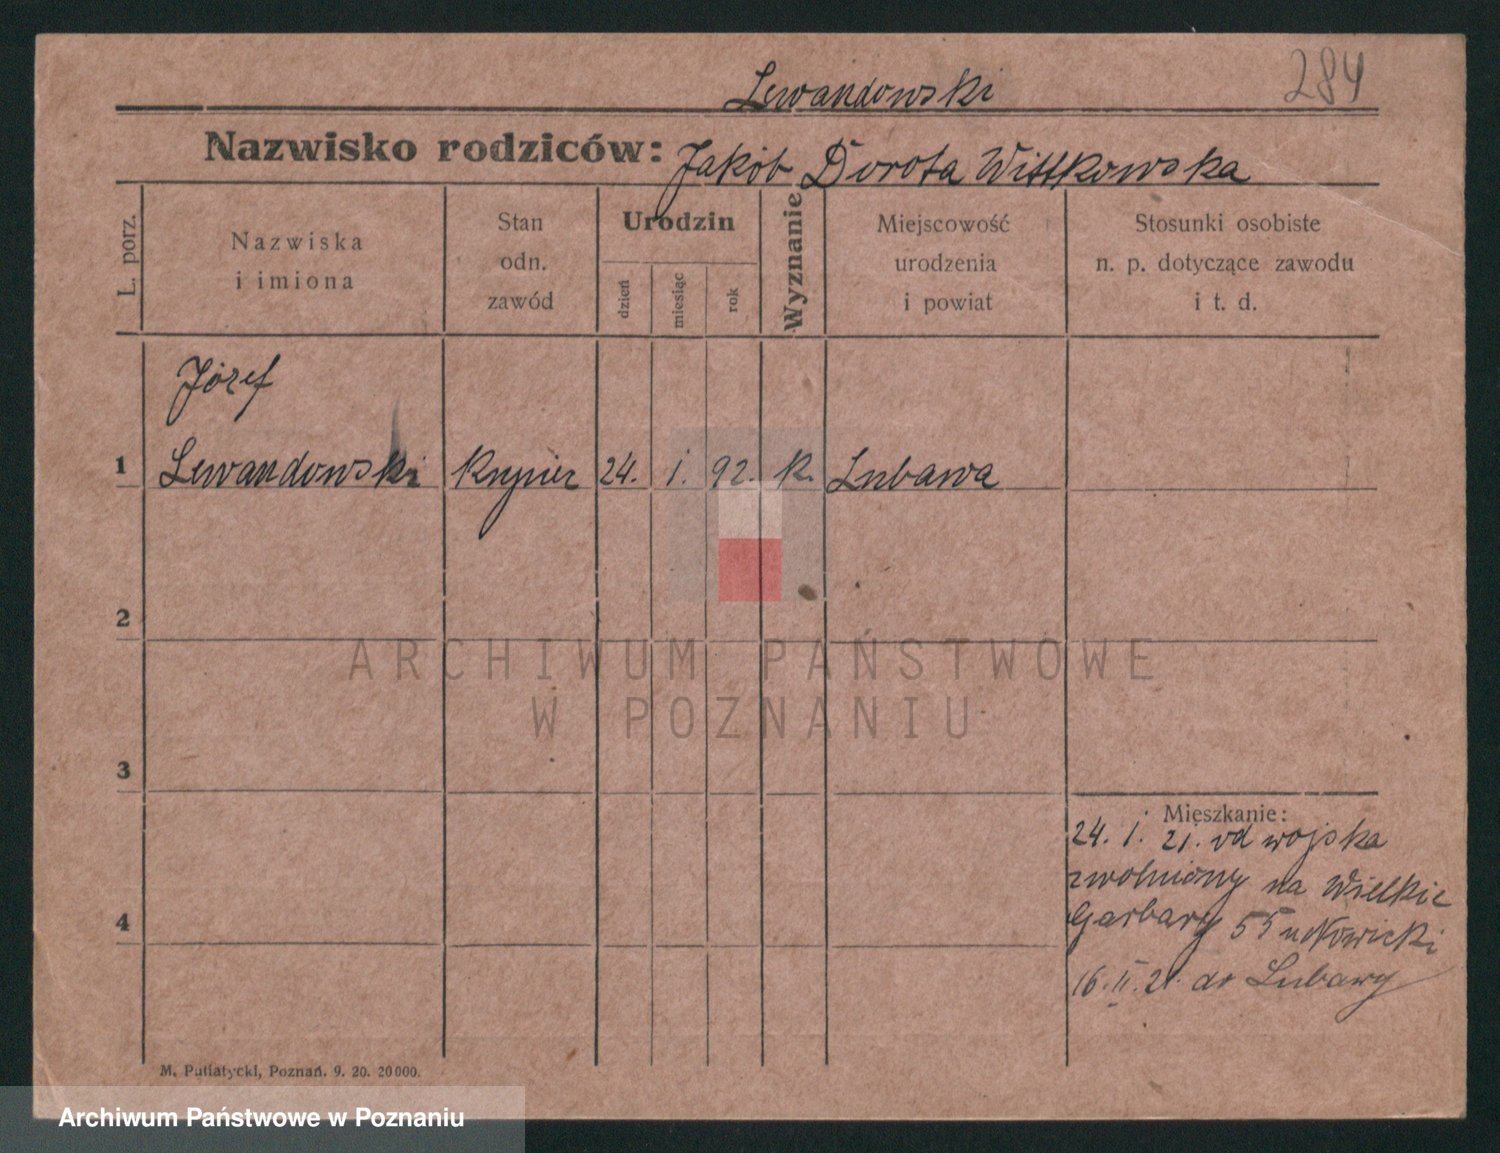 284
Lewandowski
Nazwisko rodziców: Jakób Dorota Wittkowska
L. porz.
Nazwiska
i imiona
Stan
odn.
zawód
Urodzin
dzień
miesiąc
rok
Wyznanie
Miejscowość
urodzenia
i powiat
Stosunki osobiste
n. p. dotyczące zawodu
i t. d.
Józef
1 Lewandowski 24. I. 92. k. Lubawa
2
3
4
Mieszkanie:
24. I. 21. od wojska
zwolniony na Wielkie
Garbary 55 u Nowicki
16. II. 21. do Lubawy
M. Putiatycki, Poznań. 9. 20. 20000.
ARCHIWUM PAŃSTWOWE
W POZNANIU
Archiwum Państwowe w Poznaniu